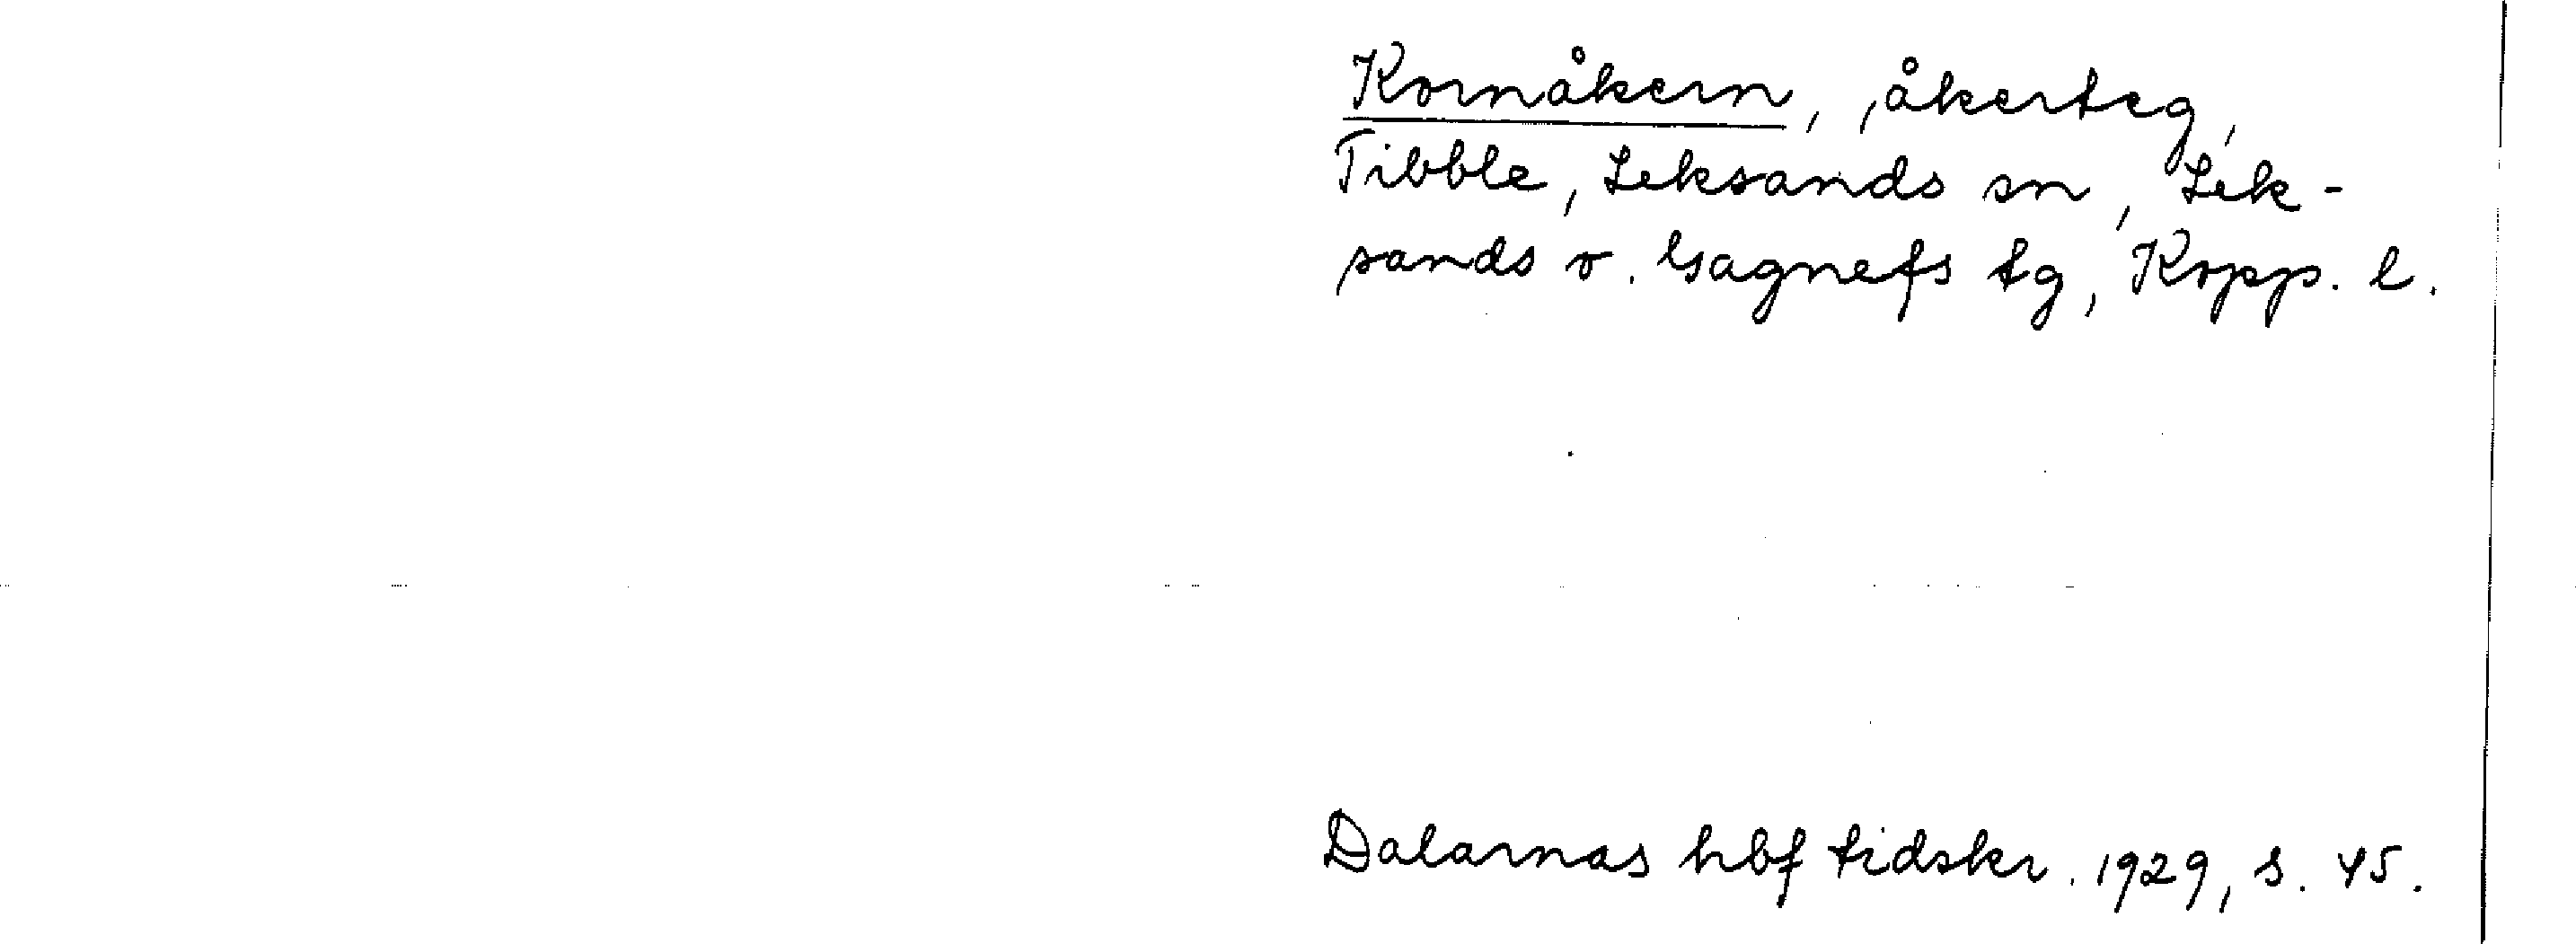 Kornåkern, åkerteg,
Tibble, Leksands sn, Lek-
sands o. Gagnefs tg, Kopp. l.
Dalarnas hbf tidskr. 1929, s. 45.